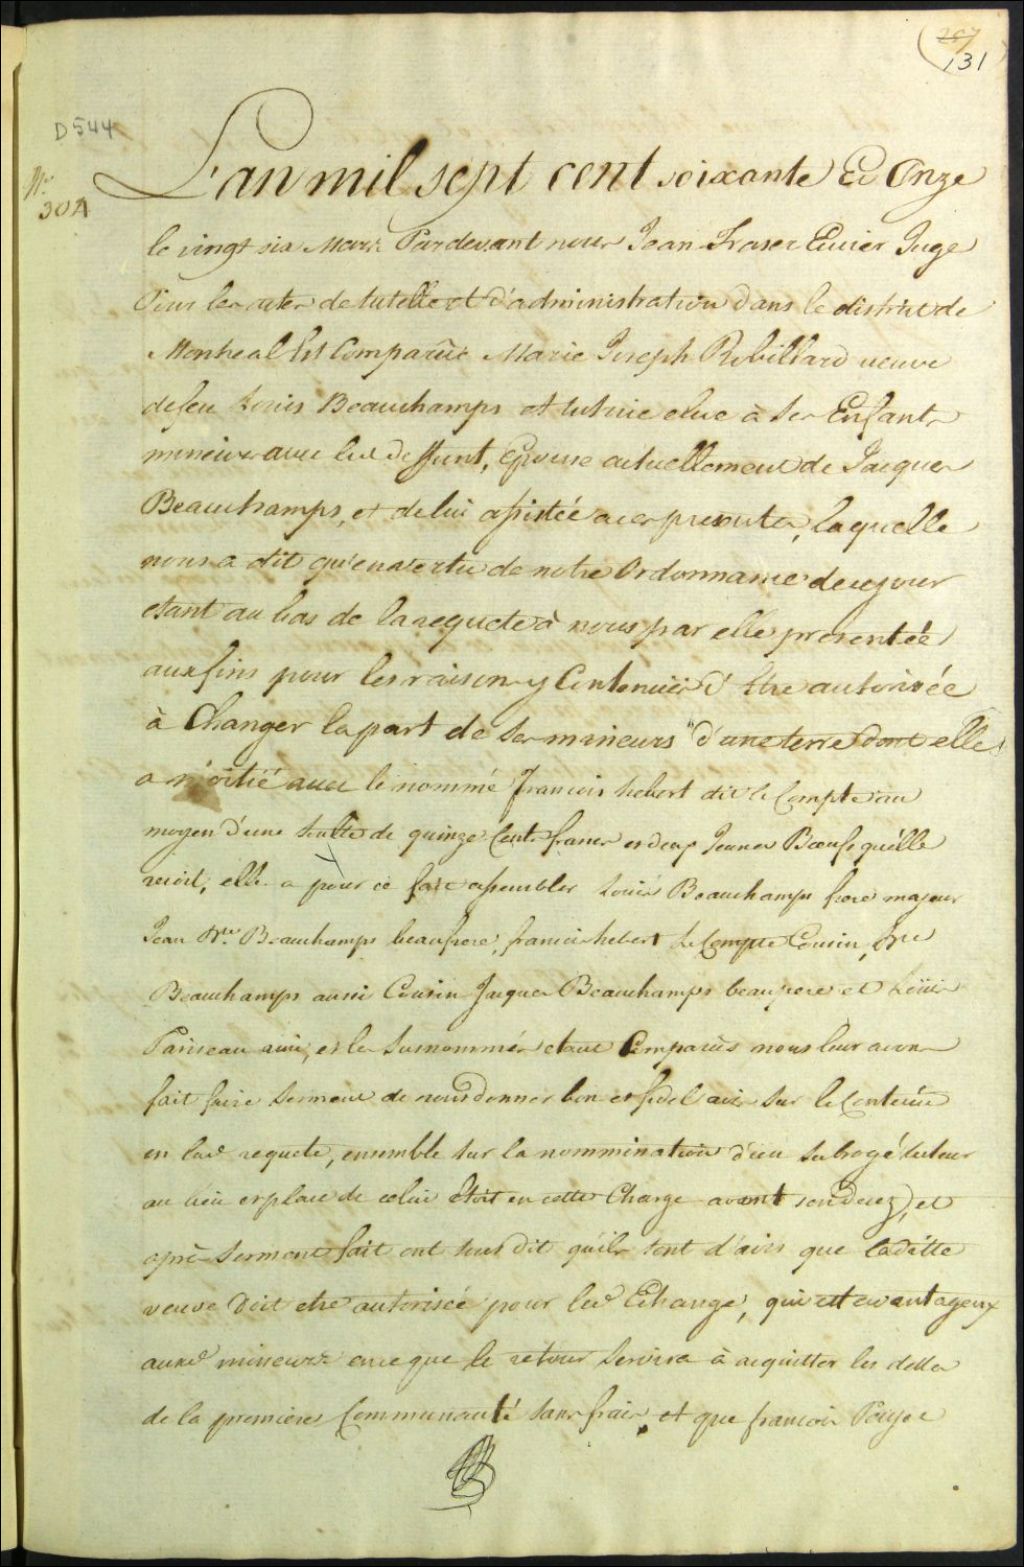 207
131
D 544
No.
30A
L'an mil sept cent soixante Et Onze
le vingt six Mars Pardevant nous Jean Fraser Ecuier Juge
Pour les actes de tutelle et d'administration dans le district de
Montreal Est Comparüe Marie Joseph Robillard veuve
de feu Louis Beauchamps et tutrice elue à Ses Enfants
mineurs avec led Deffunt, Epouse actuellement de Jacques
Beauchamps, et de lui assistée a ces presentes, laquelle
nous a dit qu'en vertu de notre Ordonnance de ce jour
etant au bas de la requete à nous par elle presentée
aux fins pour les raisons y Contenües d'Etre autorisée
à Changer la part de Ses mineurs d'une terre dont elle
a moitié avec le nommé Francois hebert dit le Compte au
moyen d'une Soulte de quinze Cents francs et deux Jeunes Boeufs quélle
recoit, elle a pour ce fait assembler Louis Beauchamps frere majeur
Jean Bte. Beauchamps beaufrere, francois hebert Le Compte Cousin, Pre
Beauchamps aussi Cousin Jacques Beauchamps beaupere et Loüis
Pariseau ami, et les Surnommés etant Comparüs nous leur avons
fait faire Serment de nous donner bon et fidel avis Sur le Contenüe
en lad requete, ensemble Sur la nommination d'un Subrogé tuteur
au lieu et place de celui Etoit en cette Charge avant son decez, et
après Serment fait ont tous dit qu'ils sont d'avis que ladítte
veuve Doit etre autorisée pour led Echange, qui est avantageux
auxd mineurs en ce que le retour Servira à acquitter les dettes
de la premiere Communauté Sans frais, et que francois